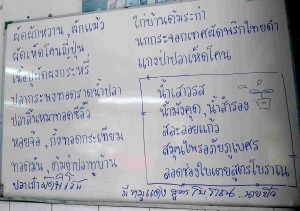 ผัดผักหวาน, ผักแม้ว
ผัดเห็ดโคนญี่ปุ่น
เนื้อปูผัดผงกะหรี่
ปลากระพงทอดราดน้ำปลา
ปลาสับหมาทอดซีอิ๊ว
หอยจ้อ, กุ้งทอดกระเทียม
ทอดมัน, ต้มยำปลาทูบ้าน
ไก่บ้านต้มระกำ
นกกระจอกเทศผัดพริกไทยดำ
แกงป่าปลาเห็ดโคน
น้ำเสาวรส
น้ำมังคุด, น้ำสำรอง
สละลอยแก้ว
สมุนไพรอภัยภูเบศร
ลอดช่องใบเตยสูตรโบราณ
มีหมูแดง สูตรโบราณ